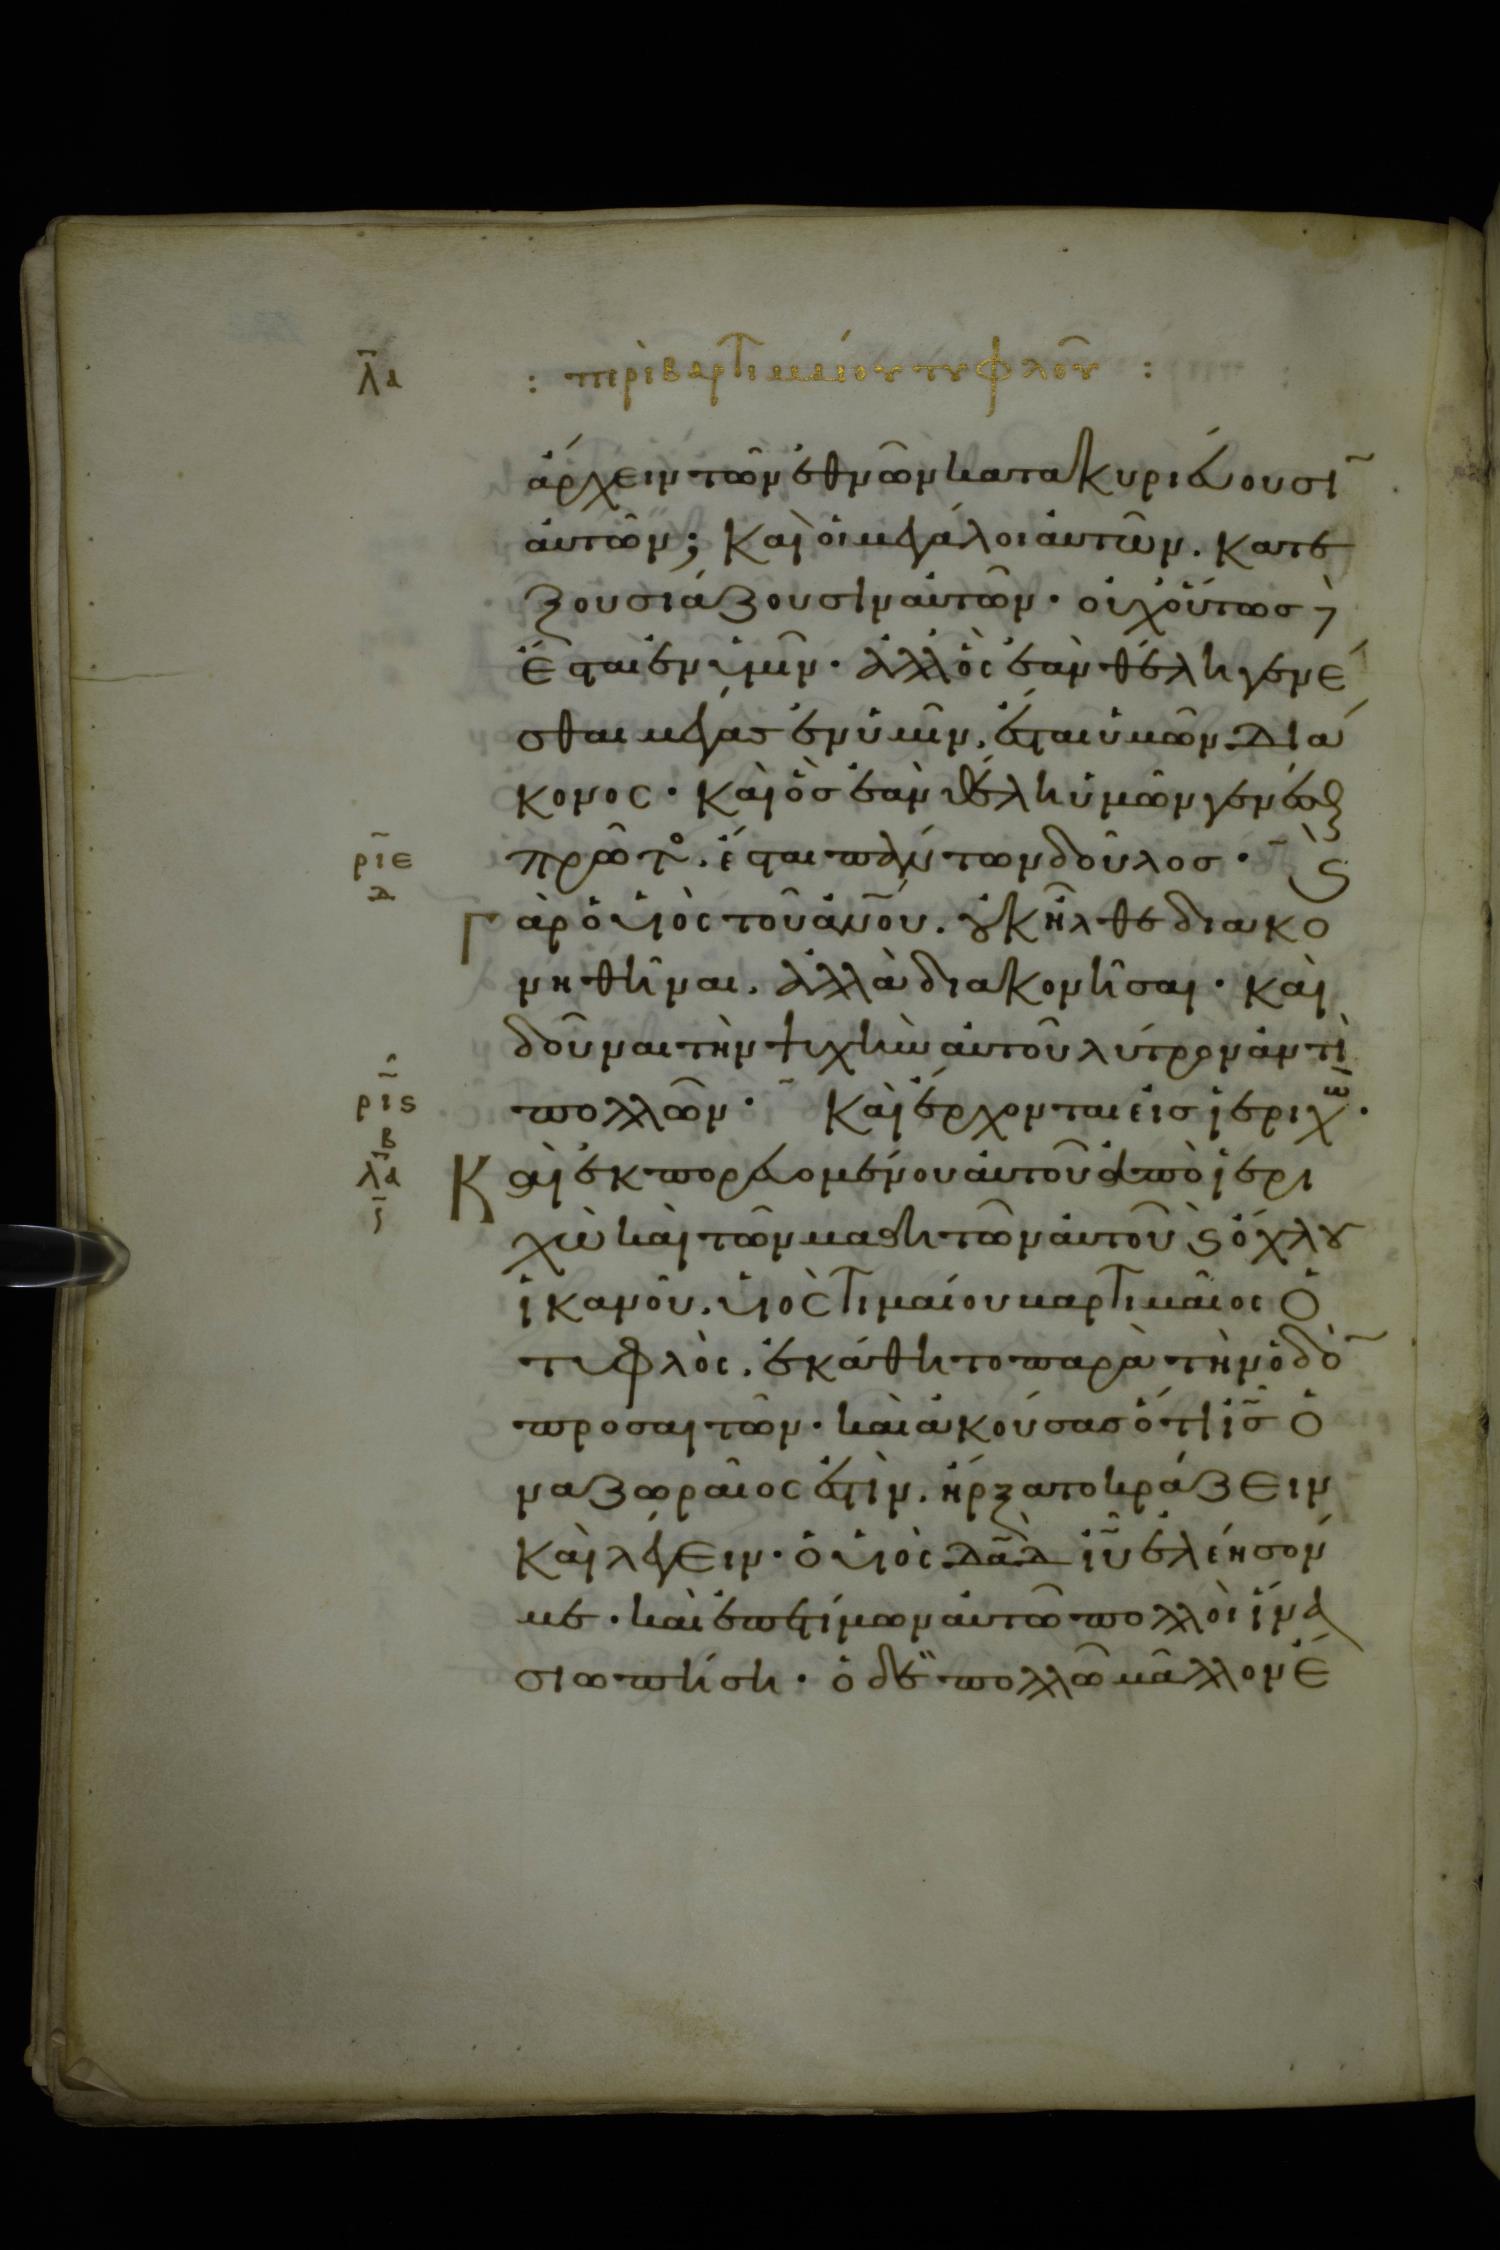 λα : περὶ βαρτιμαίου τυφλοῦ :
ἄρχειν τῶν ἐθνῶν κατακυριεύουσῑ
ἀυτῶν; Καὶ ὁι μεγάλοι ἀυτῶν. κατε
ξουσιάζουσιν ἀυτῶν· οὐχ ὅυτωσ δὲ
ἔσται ἐν ὑμῖν· ἀλλ ὃς ἐὰν θέλη γενέ
σθαι μέγασ ἐν ὑμῖν. ἔσται ὑμῶν διά
κονος· Καὶ ὃσ ἐὰν θέλη ὑμῶν γενέσθαι
ρῑε πρῶτος. ἔσται πάντων δοῦλοσ· ϛ̀
δ
Γὰρ ὁ υἱὸς τοῦ ἀν̅ου. οὐκ ἦλθε διακο
νηθῆναι. ἀλλὰ διακονῆσαι· Καὶ
δοῦναι τὴν ψυχὴν ἀυτοῦ λύτρον ἀντὶ
ρῑϛ πολλῶν· Καὶ ἔρχονται εἰσ ἱεριχώ.
β
λα Καὶ ἐκπορευομένου ἀυτοῦ ἀπὸ ἱερι
χὼ καὶ τῶν μαθητῶν ἀυτοῦ ϛ̀ ὄχλου
ἱκανοῦ. υἱὸς τιμαίου βαρτιμαῖος ὁ
τυφλὸς. ἐκάθητο παρὰ τὴν ὁδὸ̅
προσαιτῶν· καὶ ἀκούσασ ὅτι ι̅σ̅ ὁ
ναζωραῖος ἐστὶν. ἤρξατο κράζειν
Καὶ λέγειν· ὁ υἱὸς δ̅α̅δ̅ ι̅υ̅ ἐλέησόν
με· καὶ ἐπετίμων ἀυτῶ πολλοὶ ἵνα
σιωπήση· ὁ δὲ πολλῶ μᾶλλον ἔ